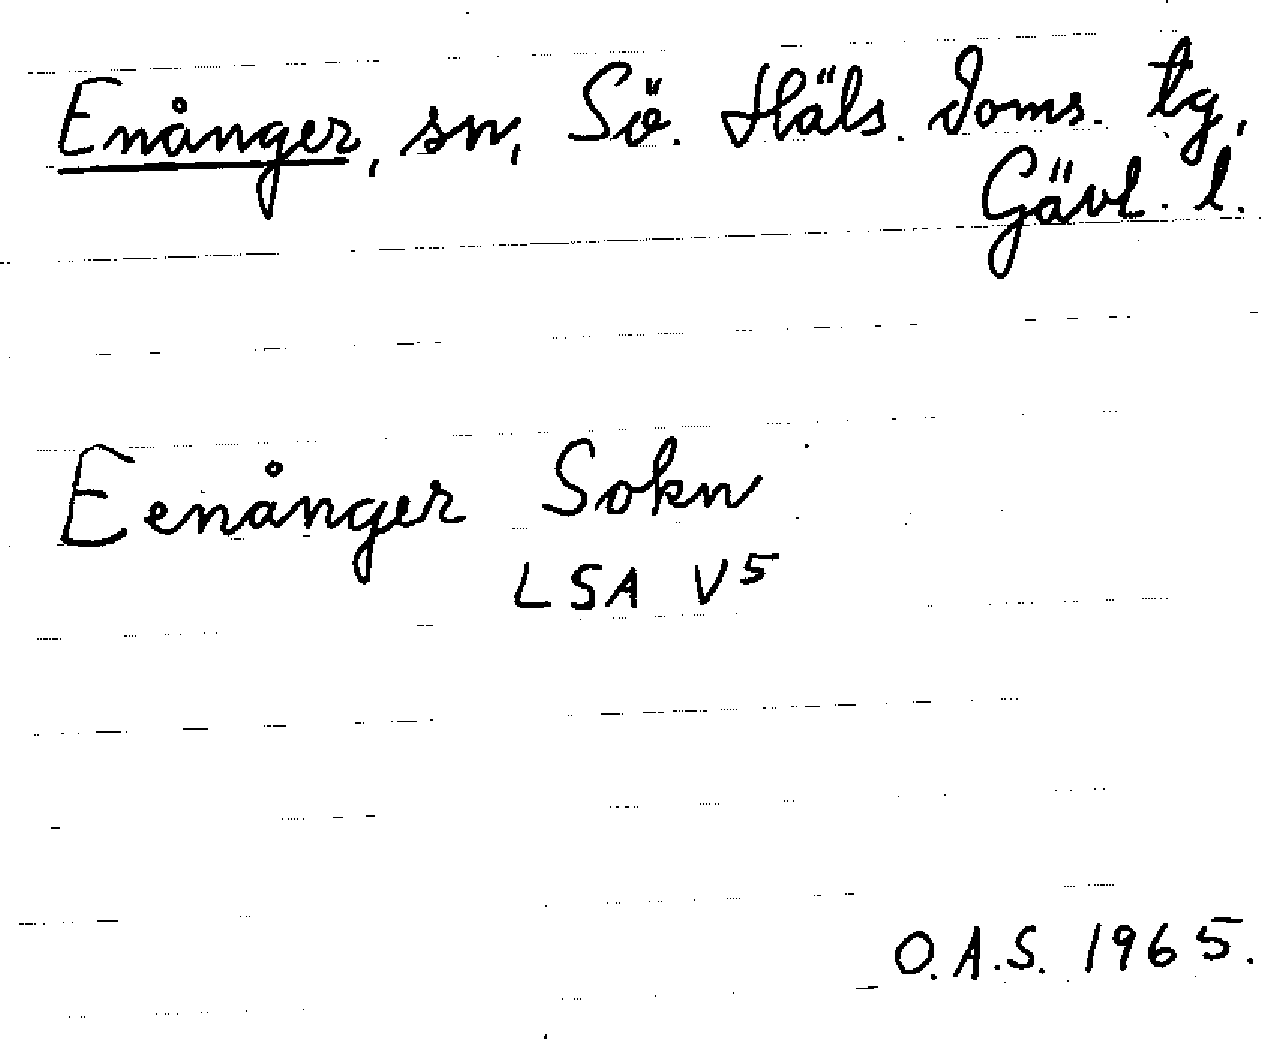 Enånger, sn, Sö. Häls. doms. tg,
Gävl. l.
Eenånger Sokn
LSA V5
O.A.S. 1965.